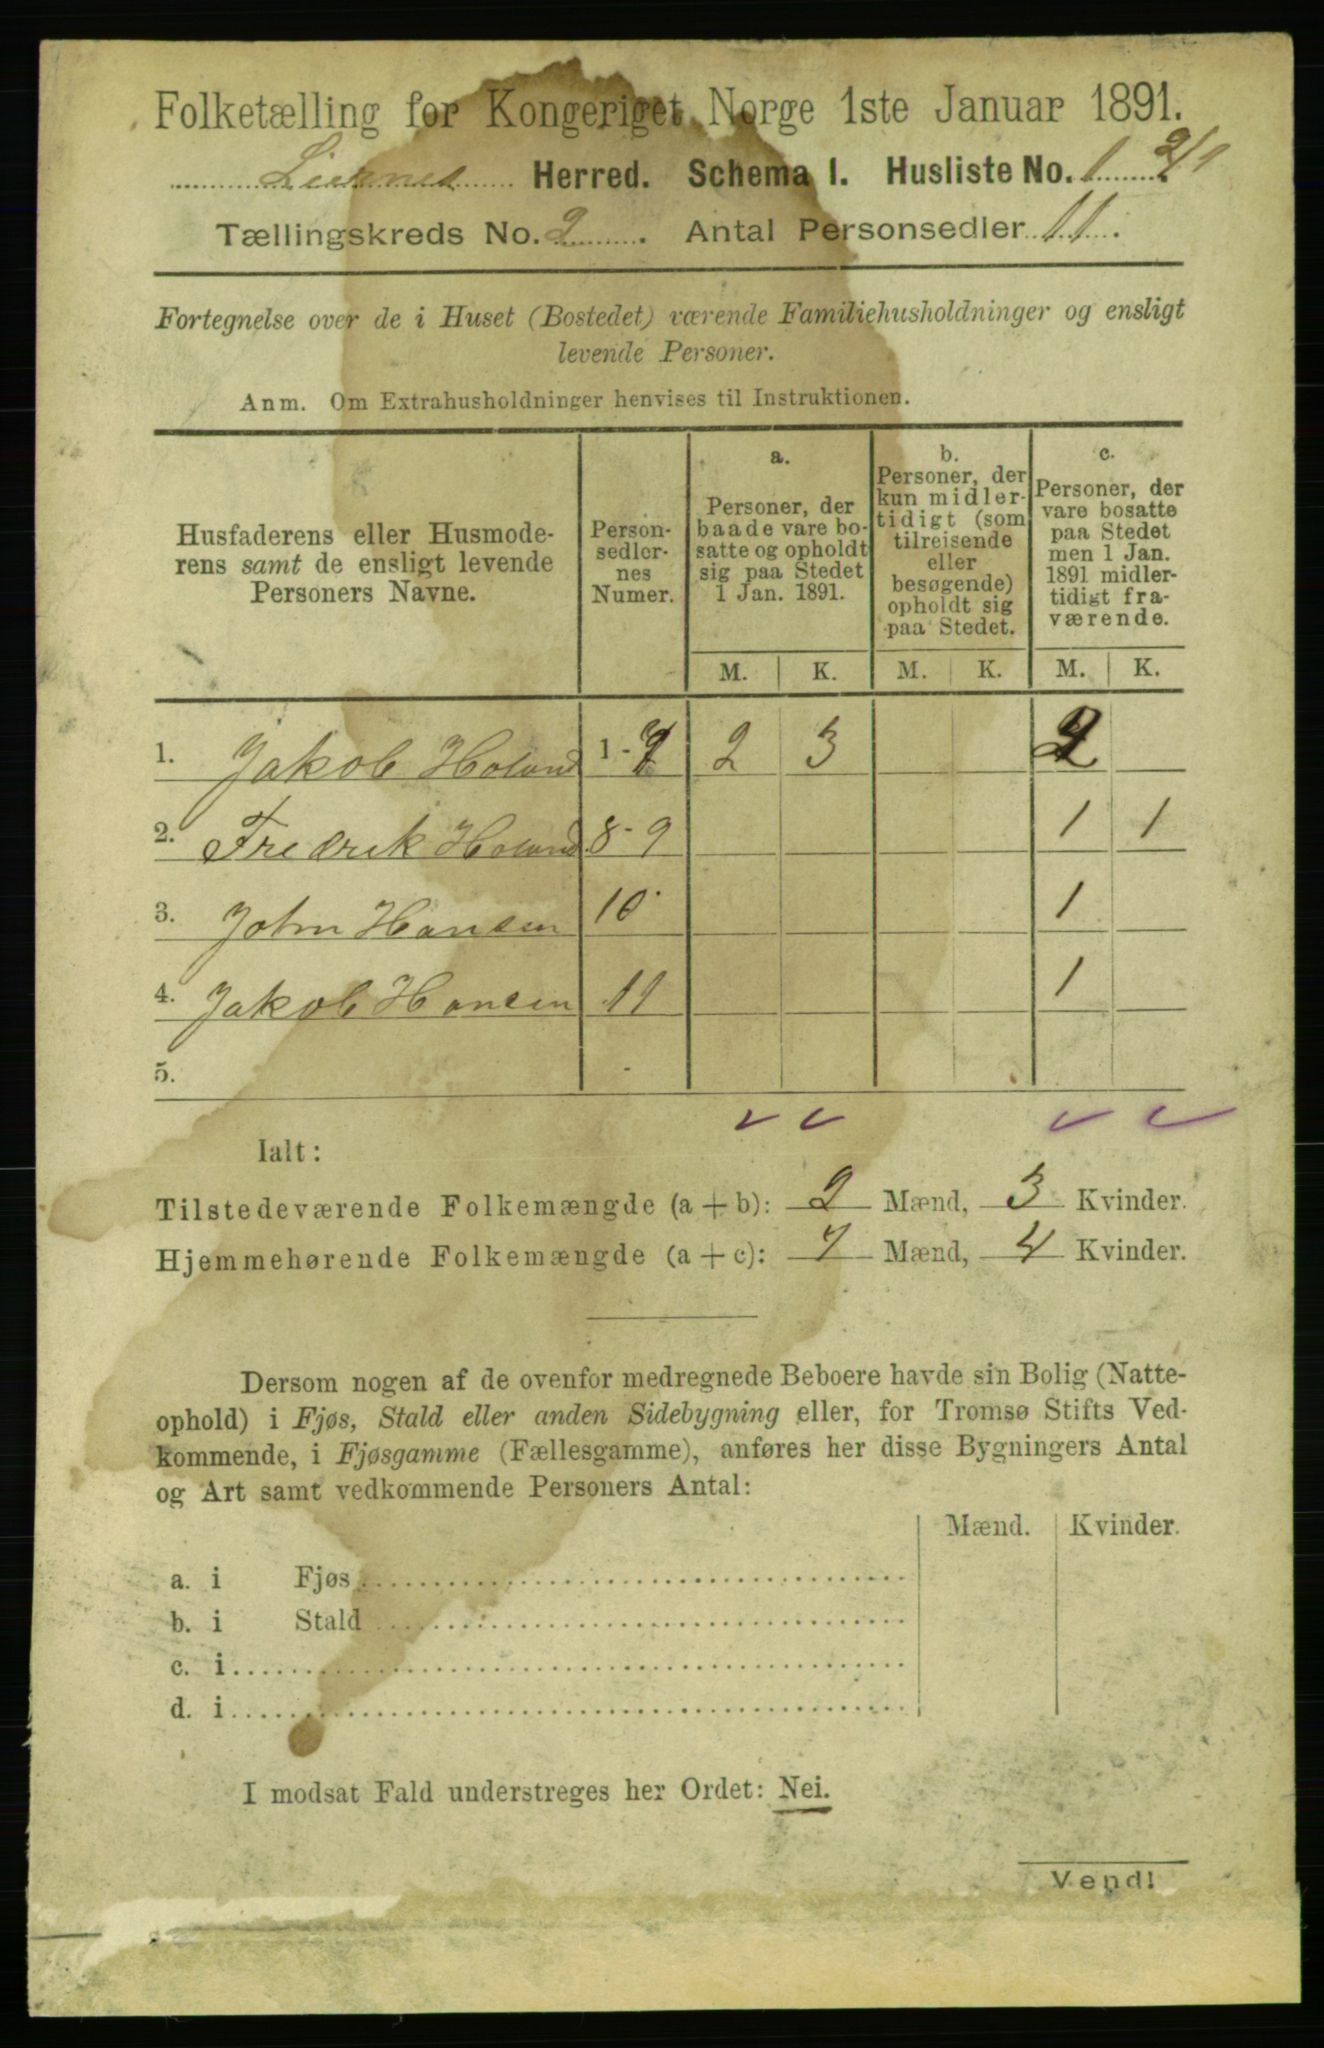 Folketælling for Kongeriget Norge 1ste Januar 1891.
Herred. Schema I. Husliste No. 1 2/1
Tællingskreds No. 2. Antal Personsedler 11.
Fortegnelse over de i Huset (Bostedet) værende Familiehusholdninger og ensligt
levende Personer.
Anm. Om Extrahusholdninger henvises til Instruktionen.
Husfaderens eller Husmode-
rens samt de ensligt levende
Personers Navne.
Person-
sedler-
nes
Numer.
a.
Personer, der
baade vare bo-
satte og opholdt
sig paa Stedet
1 Jan. 1891.
b.
Personer, der
kun midler-
tidigt (som
tilreisende
eller
besøgende)
opholdt sig
paa Stedet.
c.
Personer, der
vare bosatte
paa Stedet
men 1 Jan.
1891 midler-
tidigt fra-
værende.
M. K. M. K. M. K.
1. Jakob Holand 1 - 7 2 3 2
2. Fredrik Holand 8 - 9 1 1
3. John Hansen 10 1
4. Jakob Hansen 11 1
5.
Ialt:
Tilstedeværende Folkemængde (a + b): 2 Mænd, 3 Kvinder.
Hjemmehørende Folkemængde (a + c): 7 Mænd, 4 Kvinder.
Dersom nogen af de ovenfor medregnede Beboere havde sin Bolig (Natte-
ophold) i Fjøs, Stald eller anden Sidebygning eller, for Tromsø Stifts Ved-
kommende, i Fjøsgamme (Fællesgamme), anføres her disse Bygningers Antal
og Art samt vedkommende Personers Antal:
Mænd. Kvinder.
a. i Fjøs
b. i Stald
c. i
d. i
I modsat Fald understreges her Ordet: Nei.
Vend!